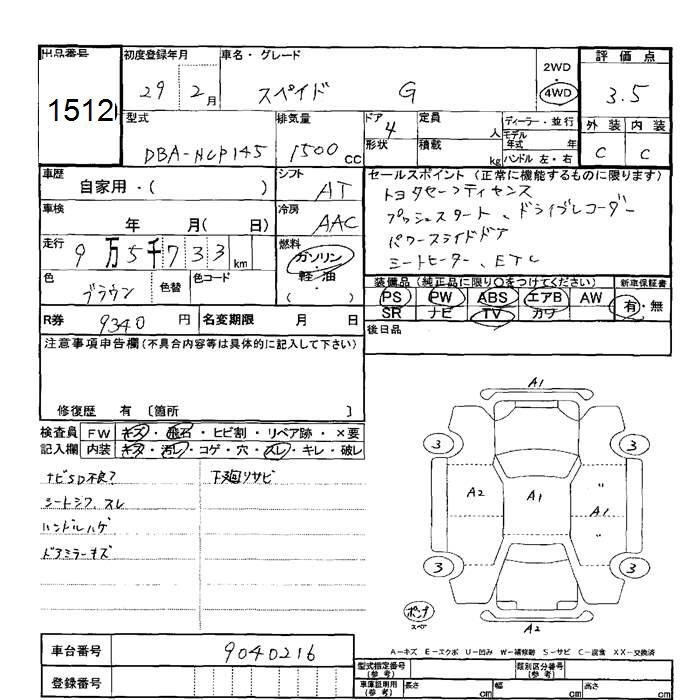 出品番号
1512
初度登録年月
29 2月
車名・グレード
スペイド G
2WD
4WD
評価点
3.5
外装 内装
C C
型式
DBA-NCP145
排気量
1500cc
ドア
4
形状
定員
人
積載
kg
ディーラー・並行
モデル
年式 年
ハンドル 左・右
車歴
自家用・( )
シフト
AT
車検
年 月( 日)
冷房
AAC
走行
9万5千733km
燃料
ガソリン
軽・油
( )
色
ブラウン
色替
色コード
R券
9340円
名変期限 月 日
セールスポイント(正常に機能するものに限ります)
トヨタセーフティセンス
プッシュスタート、ドライブレコーダー
パワースライドドア
シートヒーター、ETC
装備品(純正品に限り○をつけてください)
PS PW ABS エアB AW
SR ナビ TV カワ
新車保証書
有・無
後日品
注意事項申告欄(不具合内容等は具体的に記入して下さい)
修復歴 有 〔箇所 〕
検査員
記入欄
FW キズ・飛石・ヒビ割・リペア跡・×要
内装 キズ・汚レ・コゲ・穴・スレ・キレ・破レ
ナビSD不良?
シートシワ、スレ
ハンドルハゲ
ドアミラーキズ
下廻りサビ
A1
3 3
A2 A1 〃
A1
〃
3 3
ポンプ
スペア
A2
A-キズ E-エクボ U-凹み W-補修跡 S-サビ C-腐食 XX-交換済
車台番号
9040216
登録番号
型式指定番号
(参考)
類別区分番号
(参考)
車庫証明用
(参考)
長さ cm
幅 cm
高さ cm